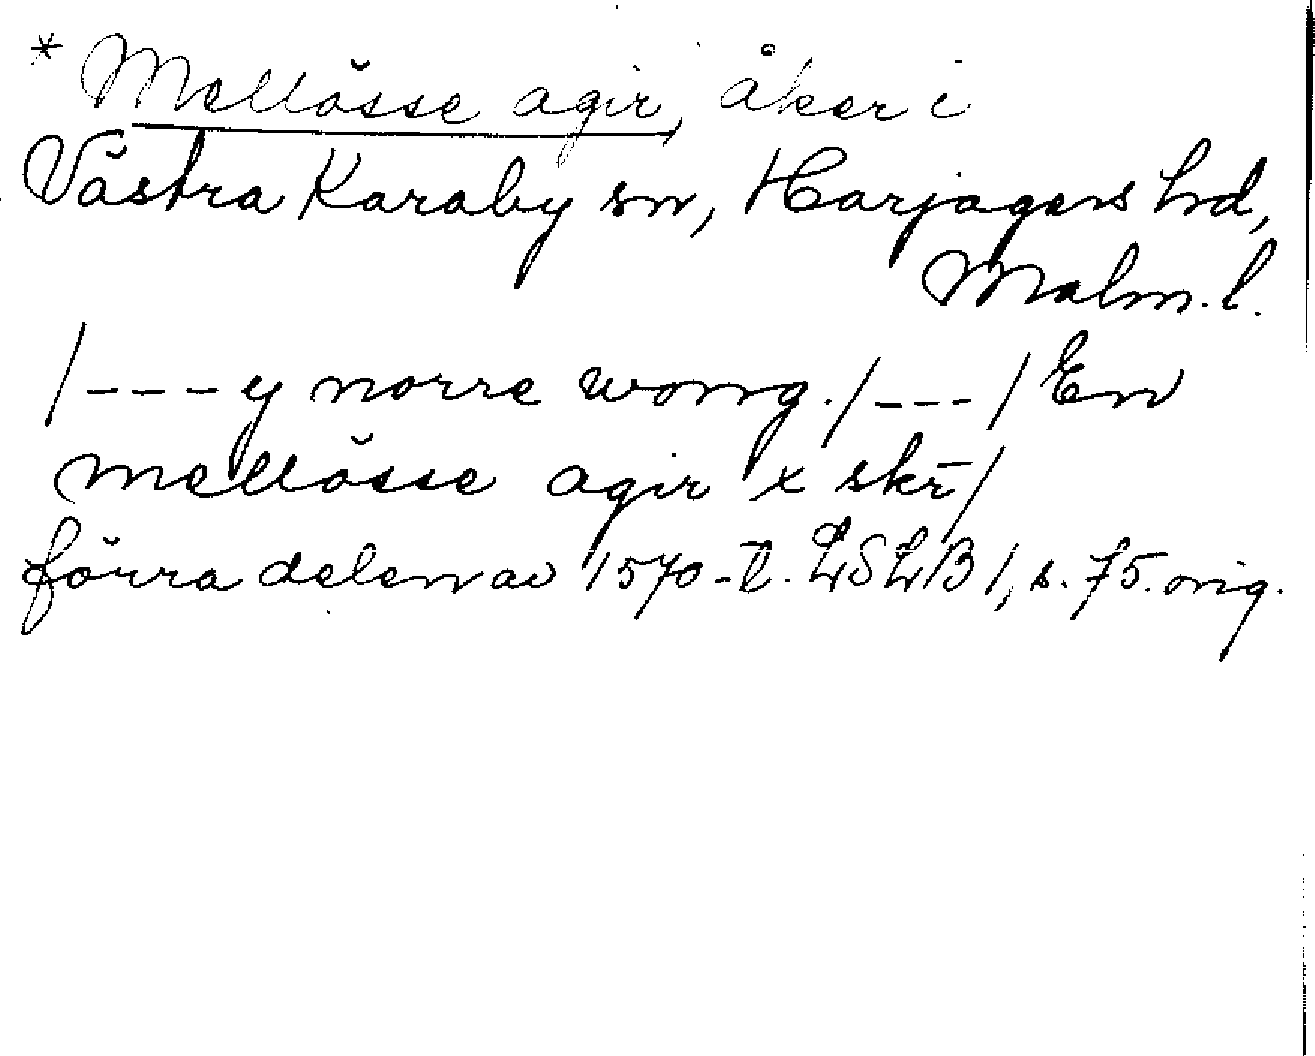 * Mellösse agir, åker i
Västra Karaby sn, Harjagers hd,
Malm. l.
/---y norre wong./---/ En
mellösse agir x skr̄/
förra delen av 1570-t. LSLB 1, s. 75. orig.